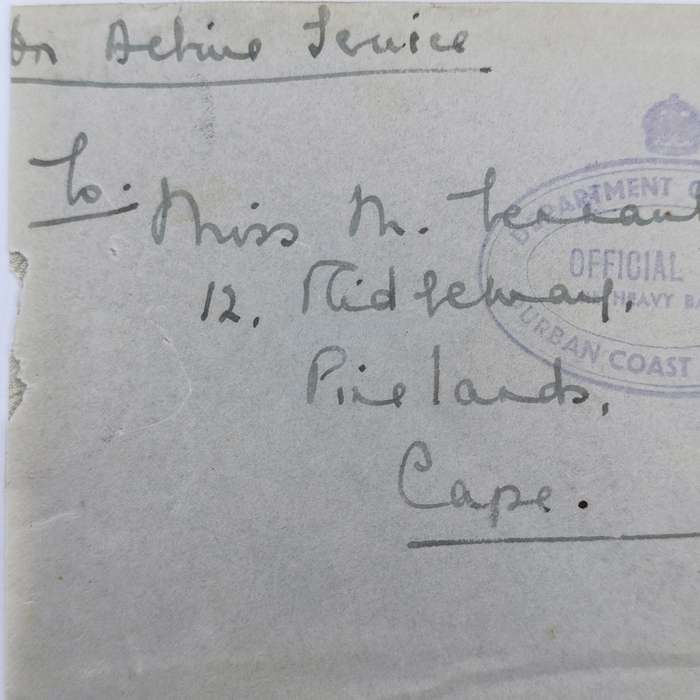 On Active Service
To. Miss M. Tennant
12, Ridgeway,
Pinelands,
Cape.
DEPARTMENT
OFFICIAL
HEAVY
URBAN COAST